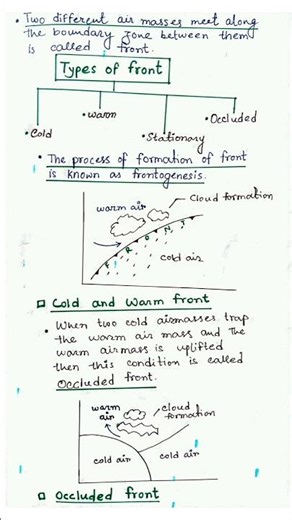 • Two different air masses meet along
the boundary zone between them
is called front.
Types of front
• Cold
• warm
• Stationary
• Occluded
• The process of formation of front
is known as frontogenesis.
warm air
cloud formation
F R O N T
cold air
Cold and Warm front
• When two cold airmasses trap
the warm air mass and the
warm airmass is uplifted
then this condition is called
Occluded front.
warm air
cloud formation
cold air
cold air
Occluded front